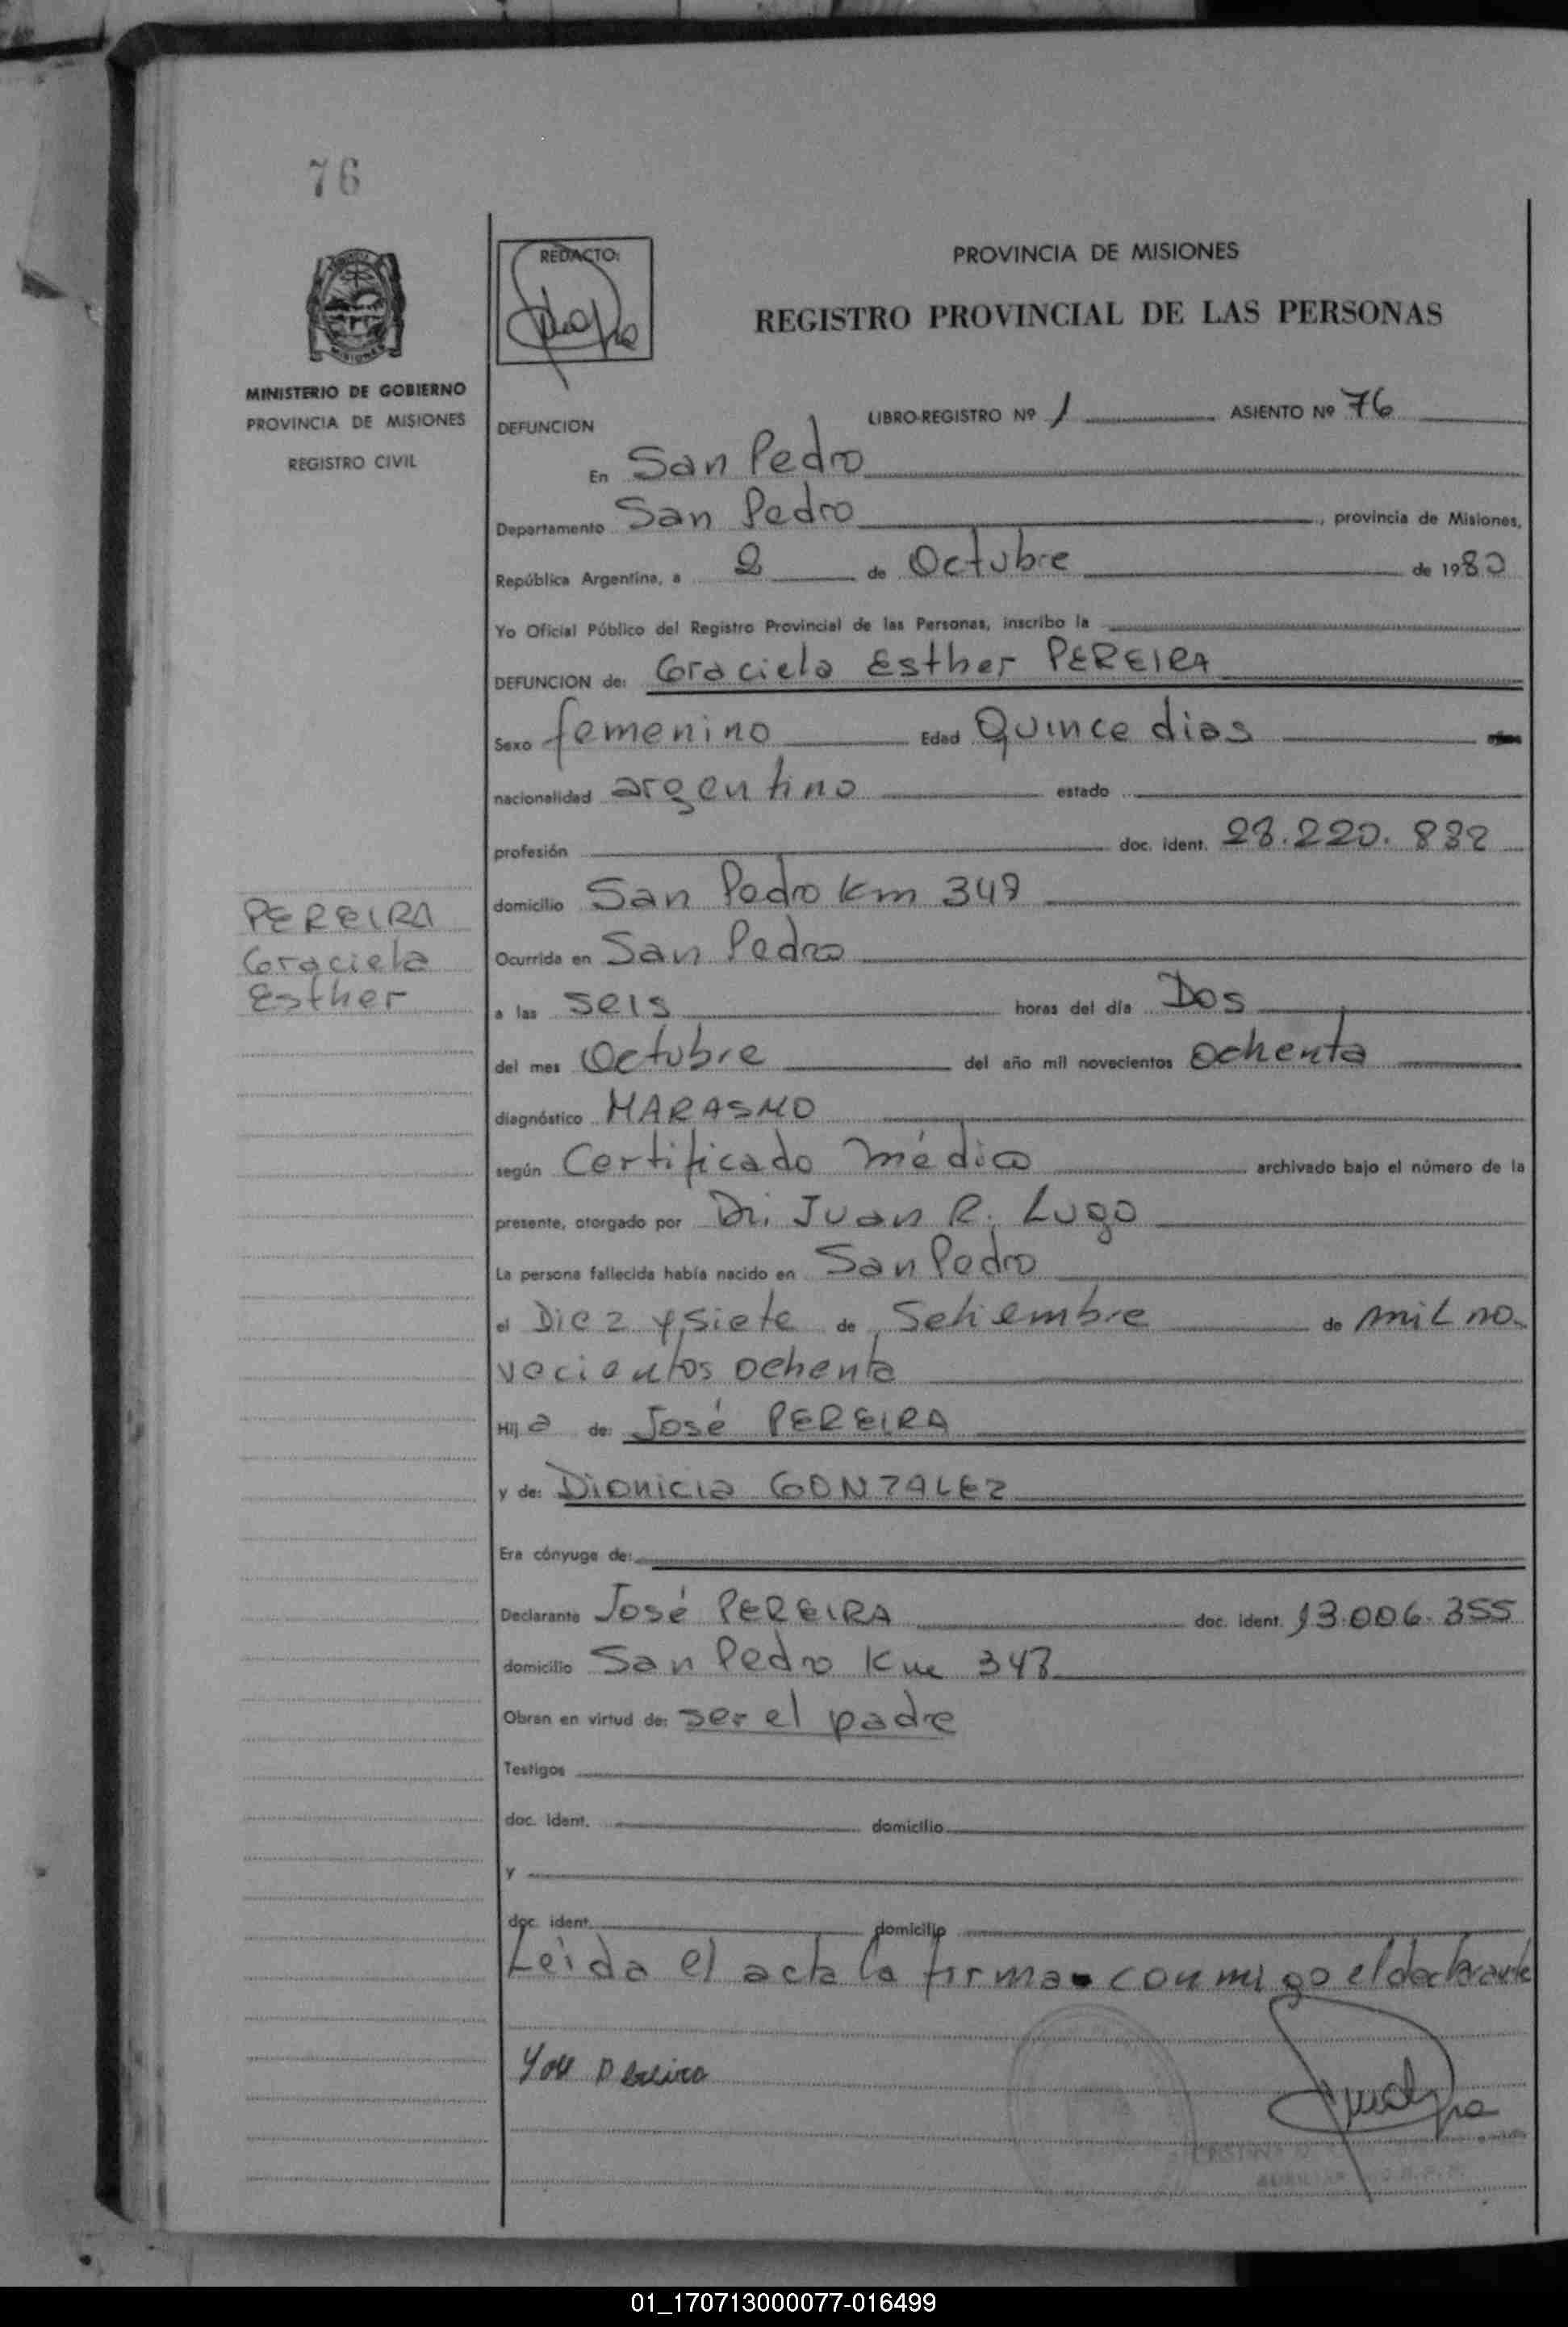 76
REDACTO:
PROVINCIA DE MISIONES
REGISTRO PROVINCIAL DE LAS PERSONAS
MISIONES
MINISTERIO DE GOBIERNO
PROVINCIA DE MISIONES
REGISTRO CIVIL
DEFUNCION
LIBRO-REGISTRO Nº 1 ASIENTO Nº 76
En San Pedro
Departamento San Pedro, provincia de Misiones,
República Argentina, a 2 de Octubre de 1980
Yo Oficial Público del Registro Provincial de las Personas, inscribo la
DEFUNCION de: Graciela Esther PEREIRA
Sexo femenino Edad Quince dias
nacionalidad argentino estado
profesión doc. ident. 28.220.832
domicilio San Pedro Km 348
PEREIRA
Graciela
Esther
Ocurrida en San Pedro
a las seis horas del día Dos
del mes Octubre del año mil novecientos ochenta
diagnóstico MARASMO
según Certificado médico archivado bajo el número de la
presente, otorgado por Dr. Juan R. Lugo
La persona fallecida había nacido en San Pedro
el Diez y siete de Setiembre de mil no-
vecientos ochenta
Hij a de: José PEREIRA
y de: Dionicia GONZALEZ
Era cónyuge de:
Declarante José PEREIRA doc. ident. 13.006.355
domicilio San Pedro Km 348
Obran en virtud de: ser el padre
Testigos
doc. ident. domicilio
y
doc. ident. domicilio
Leida el acta la firma conmigo el declarante
01_170713000077-016499